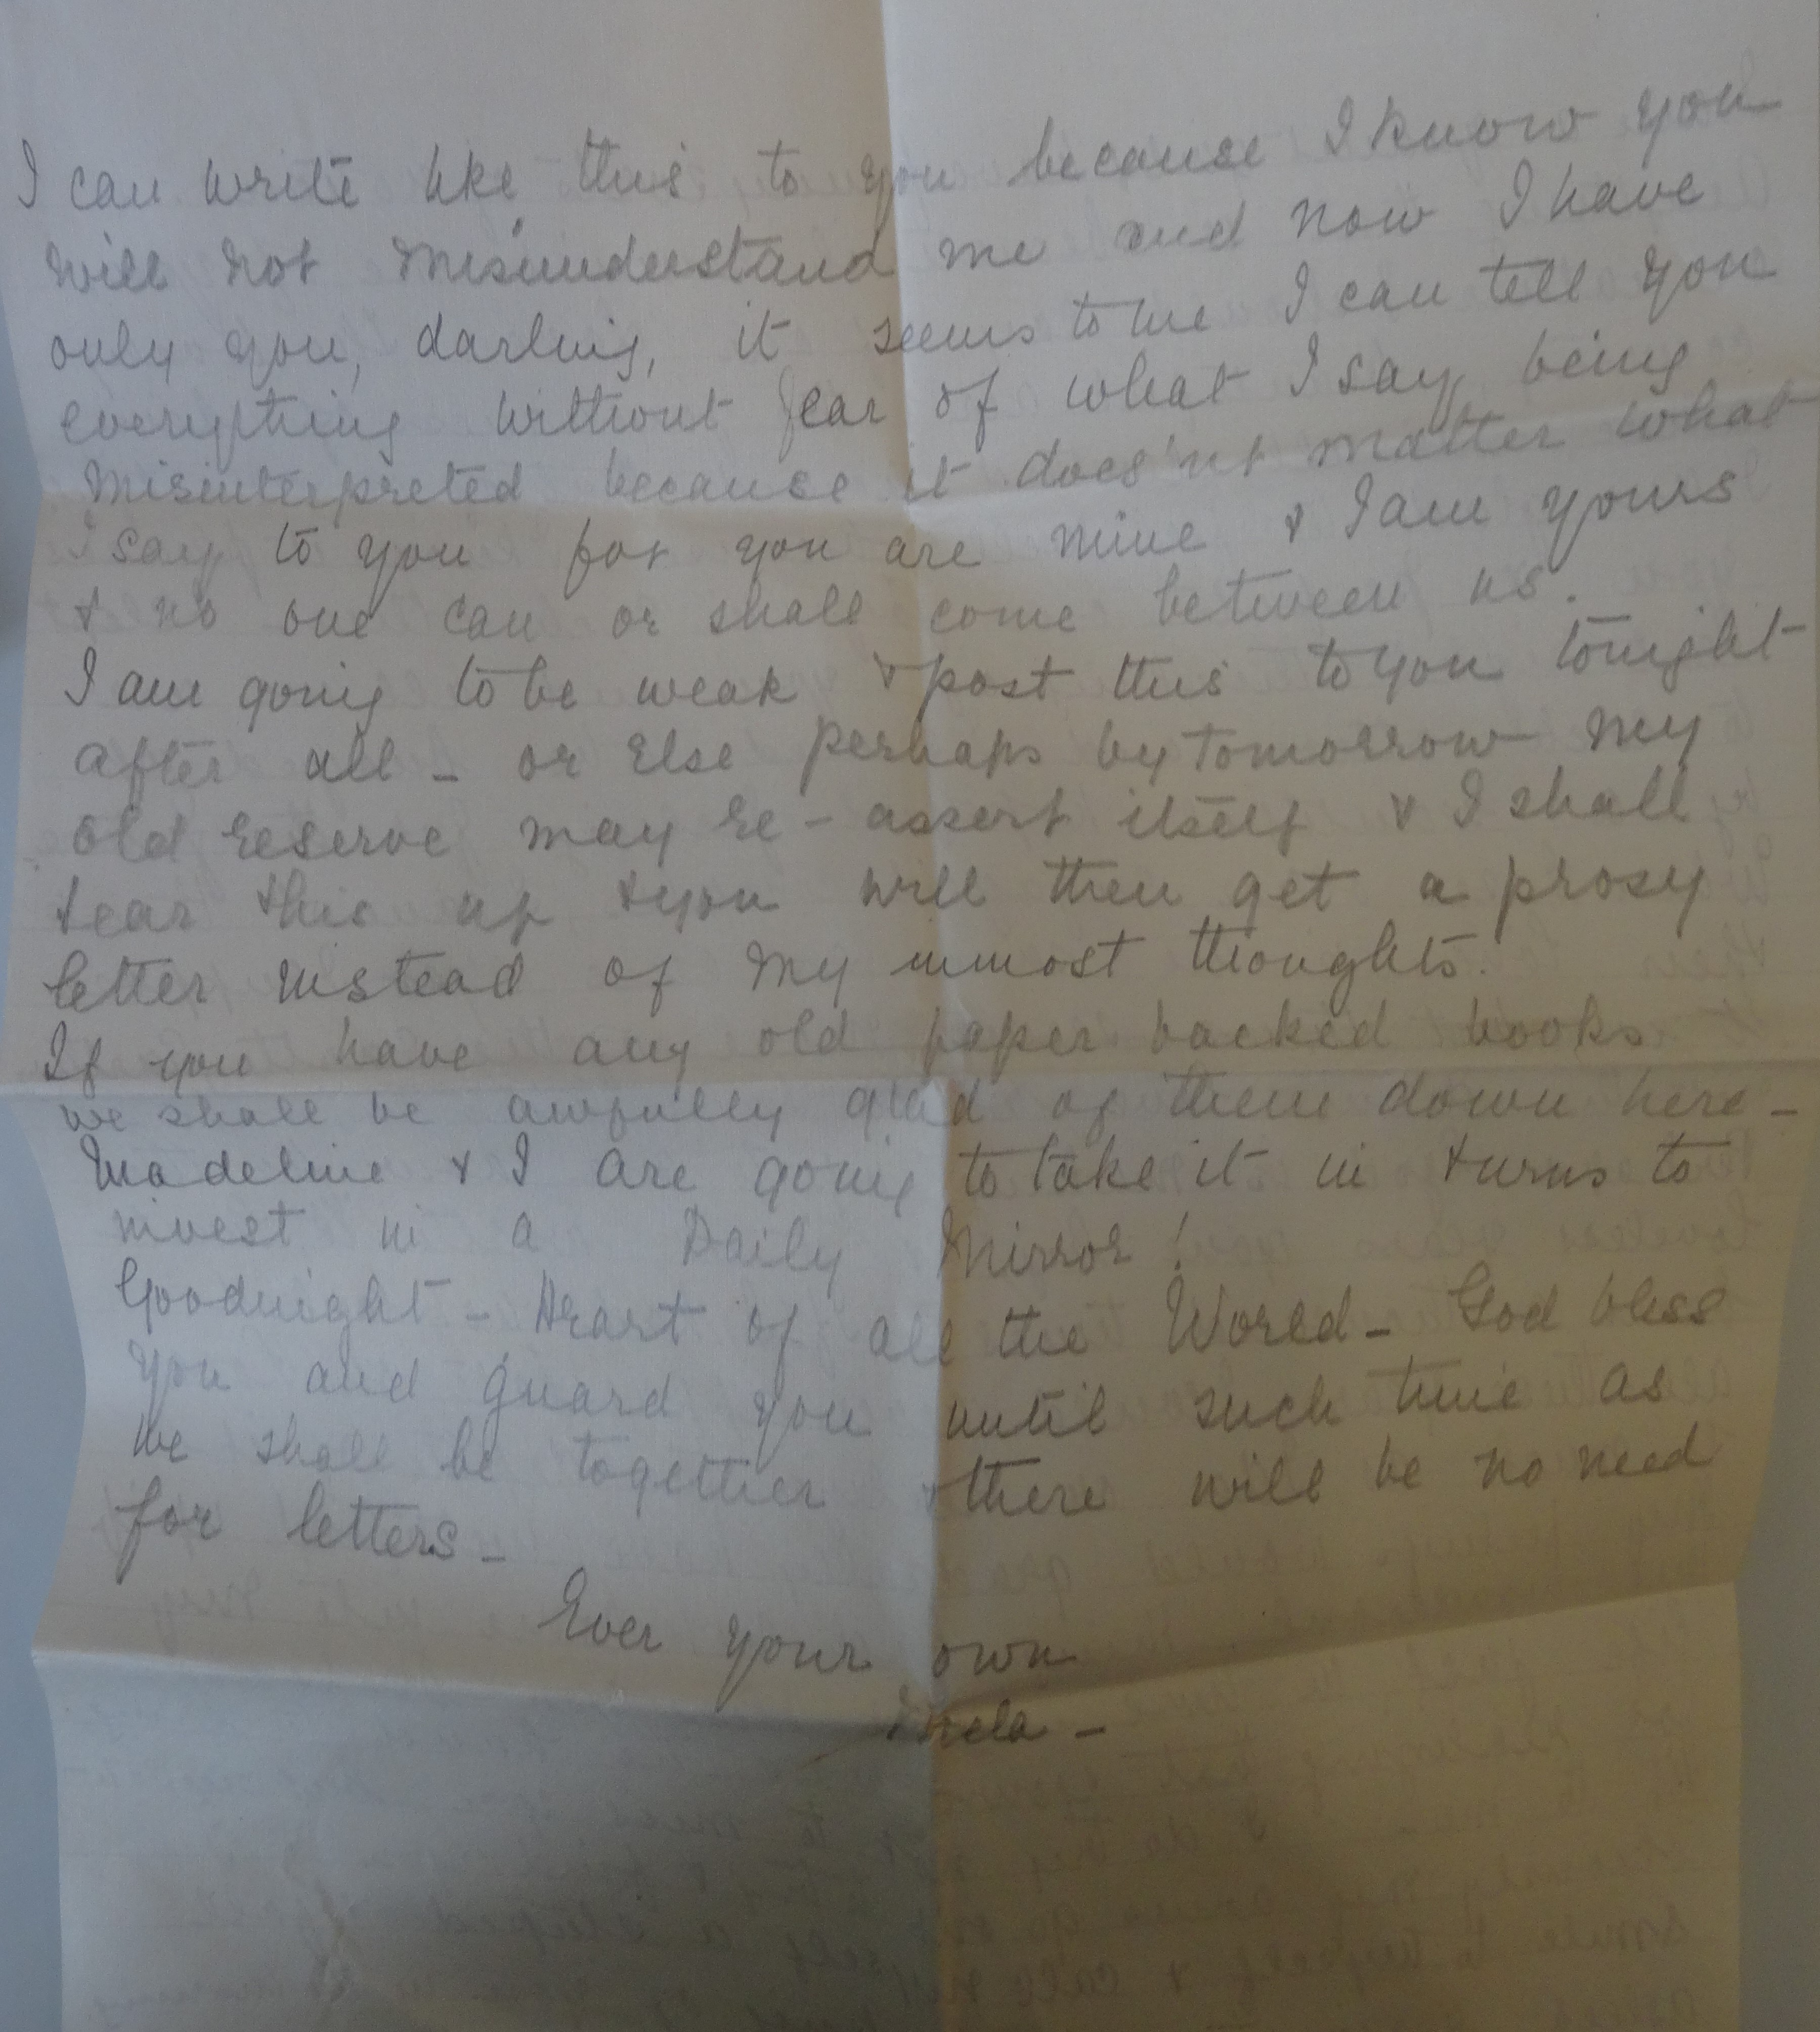 I can write like this to you because I know you
will not misunderstand me and now I have
only you, darling, it seems to me I can tell you
everything without fear of what I say being
misinterpreted because it does'nt matter what
I say to you for you are mine & I am yours
& no one can or shall come between us.
I am going to be weak & post this to you tonight
after all – or else perhaps by tomorrow my
old reserve may re-assert itself & I shall
tear this up & you will then get a prosy
letter instead of my inmost thoughts.
If you have any old paper backed books
we shall be awfully glad of them down here –
Madeline & I are going to take it in turns to
invest in a Daily Mirror!
Goodnight – Heart of all the World – God bless
you and guard you until such time as
we shall be together & there will be no need
for letters –
Ever your own